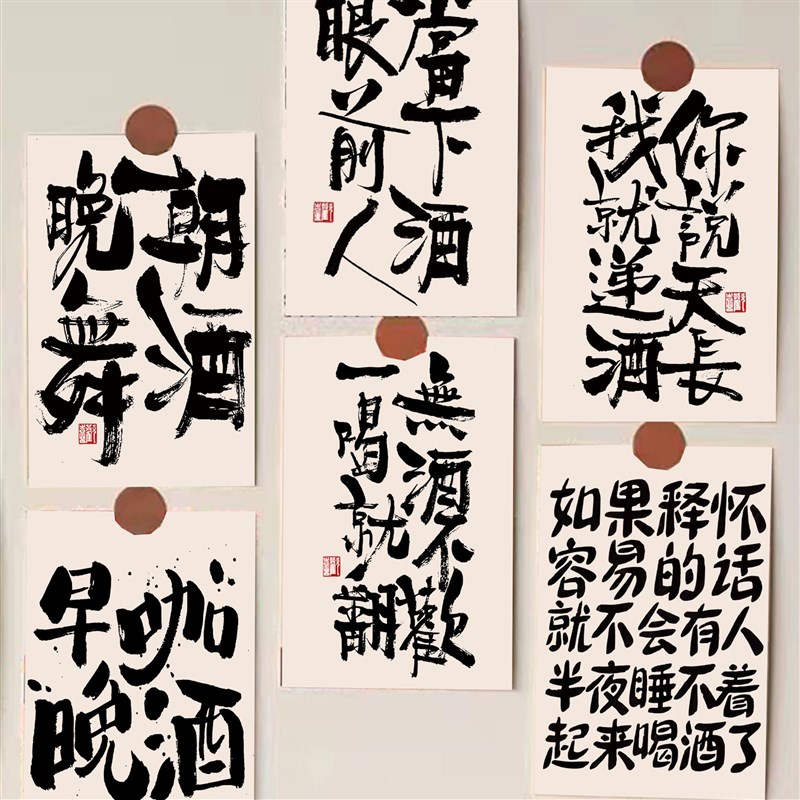 朝酒
晚舞
當下酒
眼前人
你說天長
我就递酒
早咖
晚酒
無酒不歡
一喝就翻
如果释怀
容易的话
就不会有人
半夜睡不着
起来喝酒了